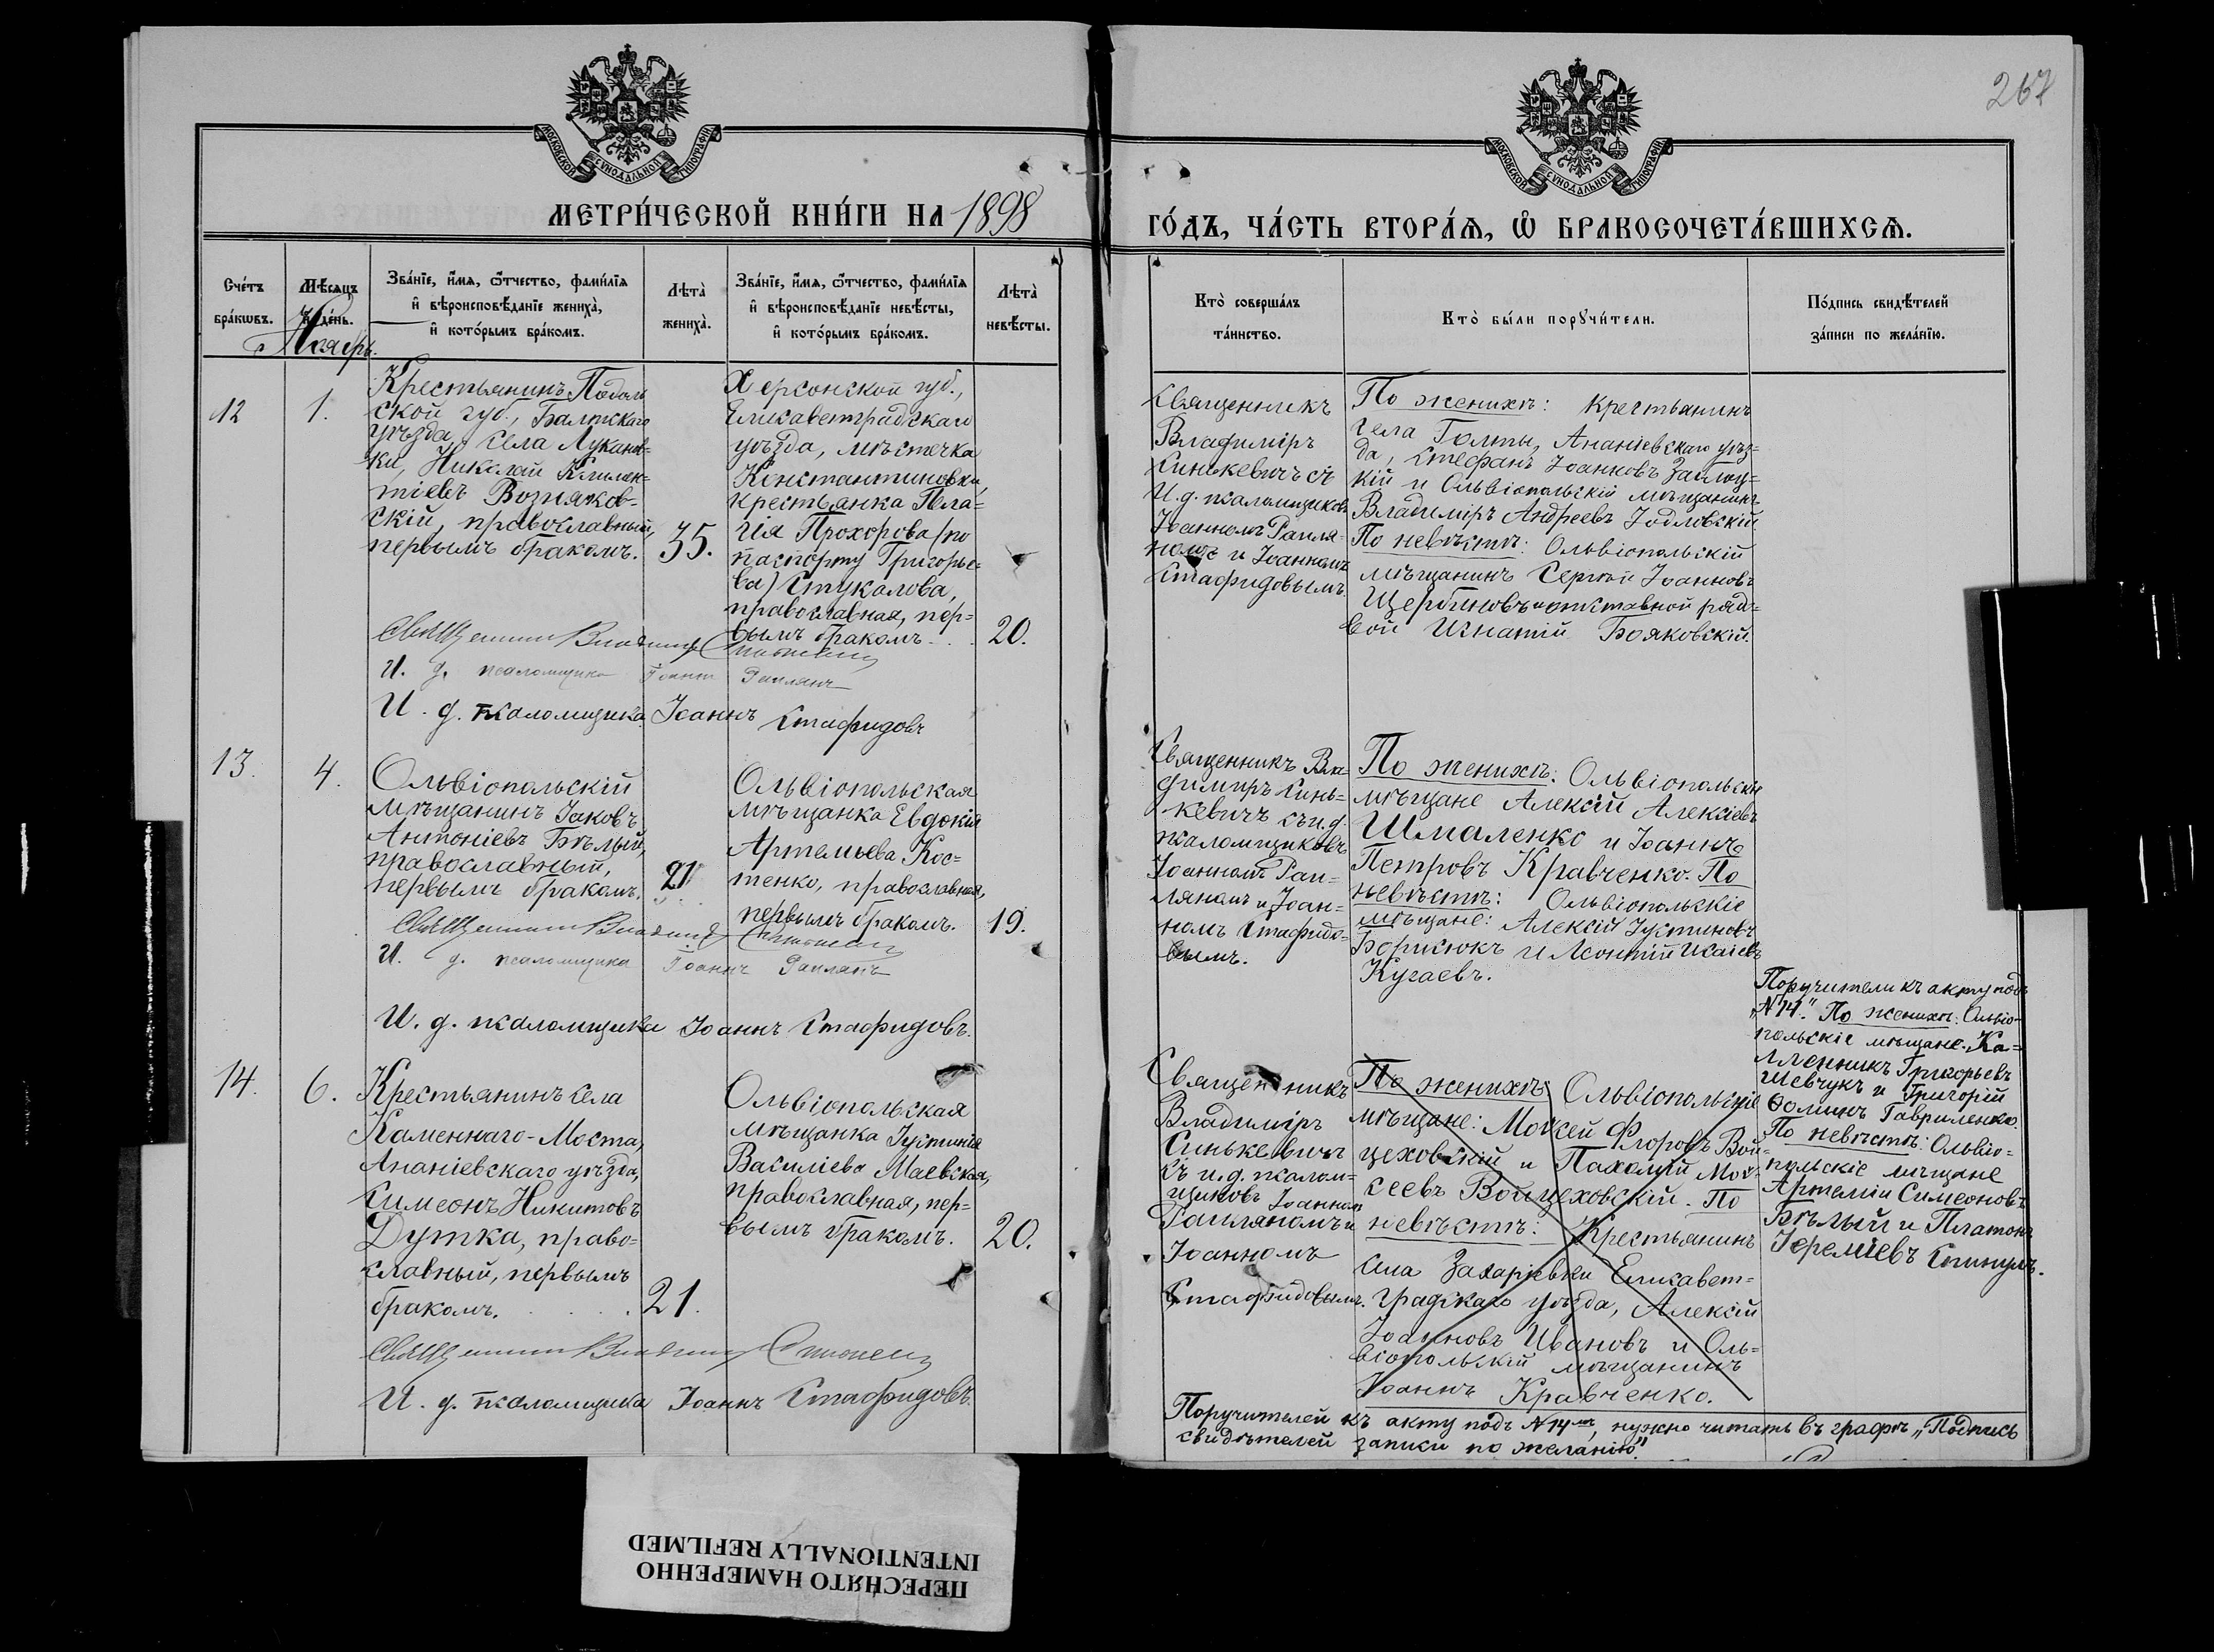 267
МОСКОВСКОЙ СѴНОДАЛЬНОЙ ТИПОГРАФІИ
МОСКОВСКОЙ СѴНОДАЛЬНОЙ ТИПОГРАФІИ
МЕТРИ́ЧЕСКОЙ КНИ́ГИ НА 1898
ГО́ДЪ, ЧА́СТЬ ВТОРА́Ѧ, Ѡ҆ БРАКОСОЧЕТА́ВШИХСѦ.
Сче́тъ
бра́кѡвъ.
Мѣ́сѧцъ
и҆ де́нь.
Ноябрь.
Зва́нїе, и҆́мѧ, ѻ҆́тчество, фами́лїѧ
и҆ вѣроисповѣ́данїе жениха̀,
и҆ кото́рымъ бра́комъ.
Лѣта̀
жениха̀.
Зва́нїе, и҆́мѧ, ѻ҆́тчество, фами́лїѧ
и҆ вѣроисповѣ́данїе невѣ́сты,
и҆ кото́рымъ бра́комъ.
Лѣта̀
невѣ́сты.
Кто̀ соверша́лъ
та́инство.
Кто̀ бы́ли порꙋчи́тели.
По́дпись свидѣ́телей
за́писи по жела́нїю.
12
1.
Крестьянинъ Подоль
ской губ., Балтскаго
уѣзда, села Луканов-
ки, Николай Климен-
тіевъ Возняков-
скій, православный,
первымъ бракомъ.
35.
Херсонской губ.,
Елисаветградскаго
уѣзда, мѣстечка
Константиновки,
крестьянка Пела=
гія Прохорова (по
паспорту Григорье=
ва) Стукалова,
православная, пер=
вымъ бракомъ.
20.
Священникъ
Владиміръ
Синькевичъ съ
И. д. псаломщиковъ
Іоанномъ Рапля-
номъ и Іоанномъ
Стафидовымъ.
По женихѣ: крестьянинъ
села Голты, Ананіевскаго уѣз=
да, Стефанъ Іоанновъ
кій и Ольвіопольскій мѣщанинъ
Владиміръ Андреевъ Іодловскій.
По невѣстѣ: Ольвіопольскій
мѣщанинъ Сергѣй Іоанновъ
Щербиновъ и отставной рядо-
вой Игнатій Бояковскій.
Священникъ Владиміръ Синькевичъ
И. д. псаломщика Іоаннъ Раплянъ
И. д. псаломщика Іоаннъ Стафидовъ
13.
4.
Ольвіопольскій
мѣщанинъ Іаковъ
Антоніевъ Бѣлый,
православный,
первымъ бракомъ.
21
Ольвіопольская
мѣщанка Евдокія
Артемьева Кос=
тенко, православная,
первымъ бракомъ.
19.
Священникъ Вла-
димиръ Синь=
кевичъ съ и. д.
псаломщиковъ
Іоанномъ Рап=
ляномъ и Іоан=
номъ Стафидо-
вымъ.
По женихѣ: Ольвіопольскіе
мѣщане Алексій Алексіевъ
Шмаленко и Іоаннъ
Петровъ Кравченко. По
невѣстѣ: Ольвіопольскіе
мѣщане: Алексій Іустиновъ
Борисюкъ и Леонтій Исаіевъ
Кугаевъ.
Священникъ Владиміръ Синькевичъ
И. д. псаломщика Іоаннъ Раплянъ
И. д. псаломщика Іоаннъ Стафидовъ.
14.
6.
Крестьянинъ села
Каменнаго-Моста,
Ананіевскаго уѣзда,
Симеонъ Никитовъ
Дутка, право=
славный, первымъ
бракомъ.
21.
Ольвіопольская
мѣщанка Іустинія
Василіева Маевская,
православная, пер=
вымъ бракомъ.
20.
Священникъ
Владиміръ
Синькевичъ
съ и. д. псалом=
щиковъ Іоанномъ
Рапляномъ и
Іоанномъ
Стафидовымъ.
По женихѣ: Ольвіопольскіе
мѣщане: Моѵсей Флоровъ Вой-
цеховскій и Пахомій Моѵ-
сеевъ Войцеховскій. По
невѣстѣ: Крестьянинъ
села Захаріевки Елисавет=
градскаго уѣзда, Алексій
Іоанновъ Ивановъ и Оль=
віопольскій мѣщанинъ
Іоаннъ Кравченко.
Поручители къ акту подъ
"№ 14." По женихѣ: Ольвіо-
польскіе мѣщане. Ка=
линникъ Григорьевъ
Шевчукъ и Григорій
Ѳоминъ Гавриленко.
По невѣстѣ: Ольвіо=
польскіе мѣщане
Артемій Симеоновъ
Бѣлый и Платонъ
Іереміевъ
Священникъ Владиміръ Синькевичъ
И. д. псаломщика Іоаннъ Стафидовъ.
Поручителей къ акту подъ № 14мъ, нужно читать въ графѣ „Подпись
свидѣтелей записи по желанію".
ПЕРЕСНЯТО НАМЕРЕННО
INTENTIONALLY REFILMED